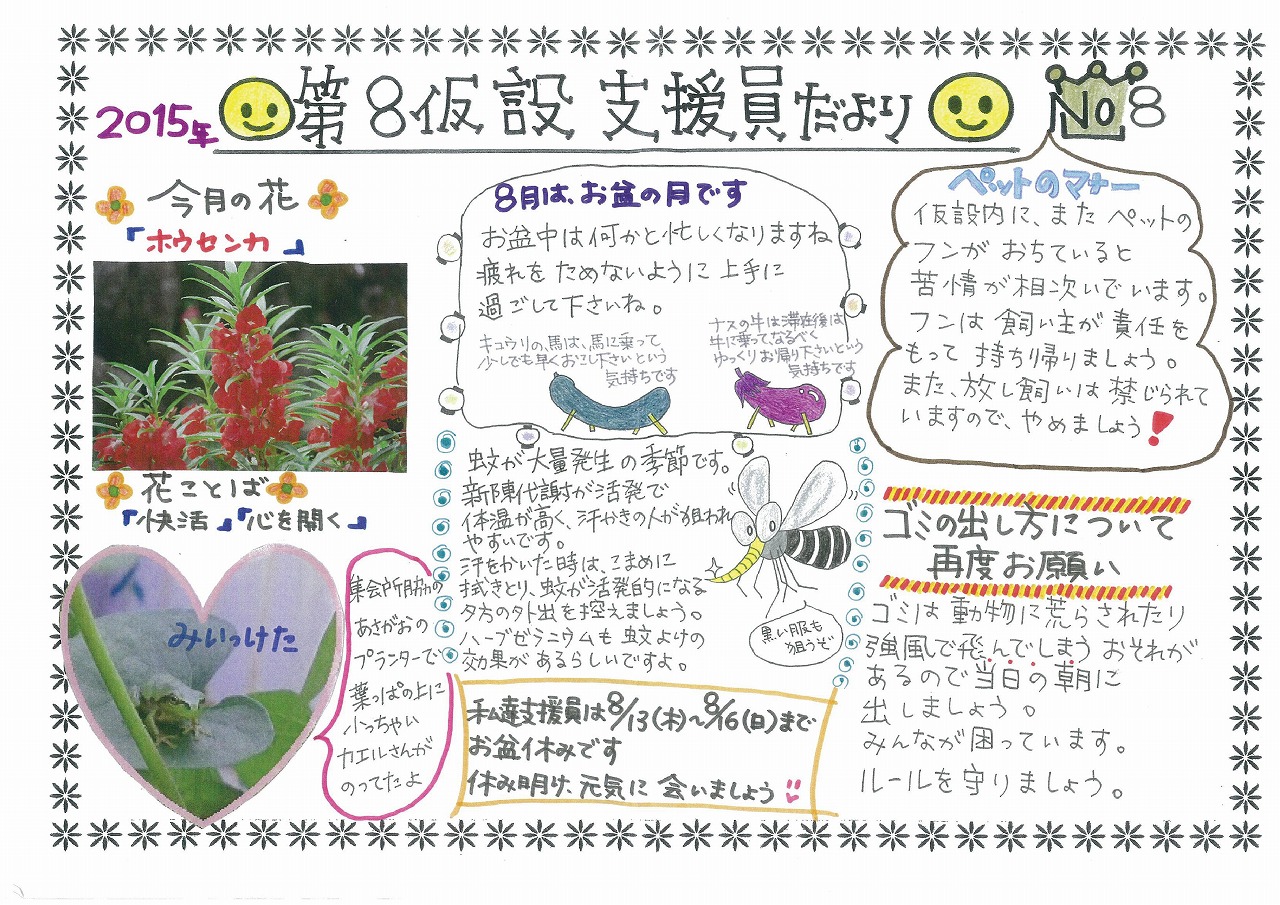 2015年
第8仮設 支援員だより
NO 8
今月の花
『ホウセンカ』
花ことば
『快活』『心を開く』
みいっけた
集会所用協の
あさがおの
プランターで
葉っぱの上に
小っちゃい
カエルさんが
のってたよ
8月は、お盆の月です
お盆中は何かと忙しくなりますね
疲れを ためないように 上手に
過ごして下さいね。
キュウリの馬は、馬に乗って
少しでも早くおこし下さいという
気持ちです
ナスの牛は滞在後は
牛に乗って、なるべく
ゆっくりお帰り下さいという
気持ちです
蚊が大量発生の季節です。
新陳代謝が活発で
体温が高く、汗かきの人が狙われ
やすいです。
汗をかいた時は、こまめに
拭きとり、蚊が活発的になる
夕方の外出を控えましょう。
ハーブゼラニウムも蚊よけの
効果があるらしいですよ。
黒い服も
狙うぞ
私達支援員は8/13(木)~8/16(日)まで
お盆休みです
休み明け、元気に会いましょう
ペットのマナー
仮設内に、また ペットの
フンが おちていると
苦情が相次いでいます。
フンは 飼い主が 責任を
もって 持ち帰りましょう。
また、放し飼いは 禁じられて
いますので、やめましょう!
ゴミの出し方について
再度お願い
ゴミは 動物に荒らされたり
強風で飛んでしまう おそれが
あるので当日の朝に
出しましょう。
みんなが困っています。
ルールを守りましょう。